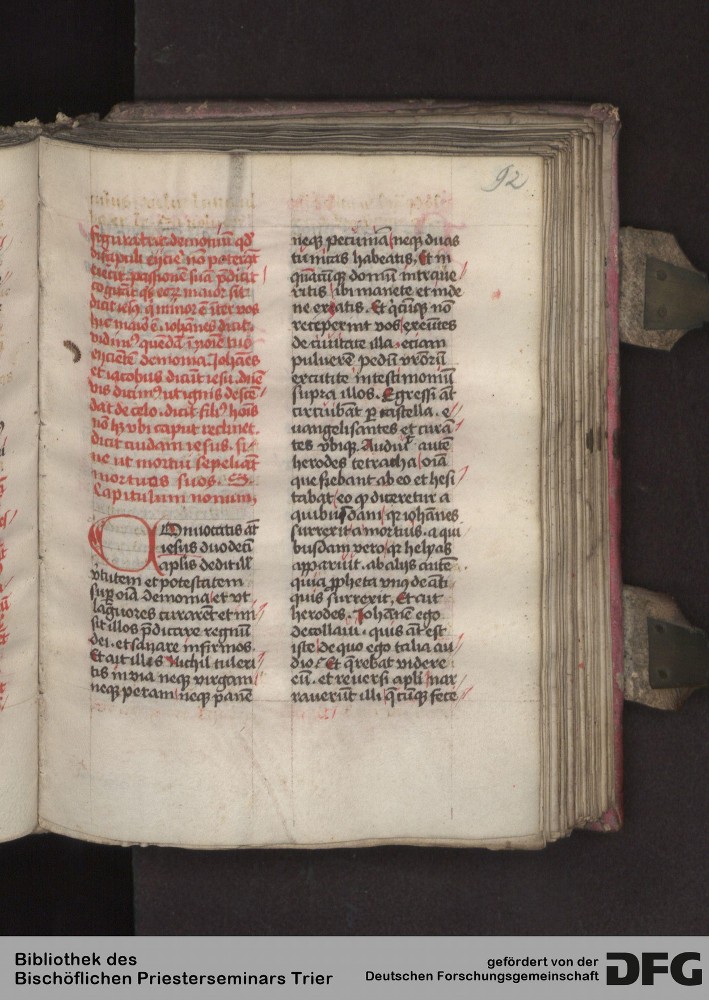 92
figuratur. demoniū qđ
discipuli eijcie nō poterāt
eiecit. passionē suā p̄dicit
cogitāt q̇s eoꝝ maior sit
dicit iesꝯ. qͥ minor ē īter vos
hic maior ē. iohānes dicit.
vidimꝯ quendā ī noīe tuo
eijciētē demonia. Iohānes
et iacobus dicūt iesu. dn̄e
vis dicimꝯ ut ignis descē
dat de celo. dicit filiꝯ hoīs
nō hꝫ vbi caput reclinet.
dicit cuidam iesus. si
ne ut mortui sepeliāt
mortuos suos.
Capitulum nonum
COnuocatis āt
iesus duodecī
aplis dedit ill
v̓tutem et potestatem
suꝑ oīa demonia et vt
laguores curarent et mi
sit illos p̄dicare regnū
dei. et sanare infirmos.
Et ait ad illos Nichil tuleri
tis in via neqꝫ virgam
neqꝫ peram neqꝫ panē
neqꝫ pecuniā neqꝫ duas
tunicas habeatis. Et in
quācūqꝫ domū intraue
ritis ibi manete et inde
ne exeatis. Et qͥcūqꝫ nō
receperint vos exeūtes
de ciuitate illa. etiam
puluerē pedū vr̄orū
excutite in testimoniū
supra illos. Egressi āt
circuibāt ꝑ castella. e
uangelisantes et curā
tes vbiqꝫ. Audiuit autē
herodes tetracha oīa
que fiebant ab eo et hesi
tabat eo ꝙ diceretur a
quibusdam qꝛ iohānes
surrexit a mortuis. a qui
busdam vero qꝛ helyas
apparuit. ab alijs autē
quia ꝓpheta vnꝯ de āti
quis surrexit. Et ait
herodes. Iohānem ego
decollaui. quis āt est
iste de quo ego talia au
dio. Et q̄rebat videre
eū. et reuersi apli nar
rauerūt illi q̄cūqꝫ fece
Bibliothek des
Bischöflichen Priesterseminars Trier
gefördert von der
Deutschen Forschungsgemeinschaft
DFG